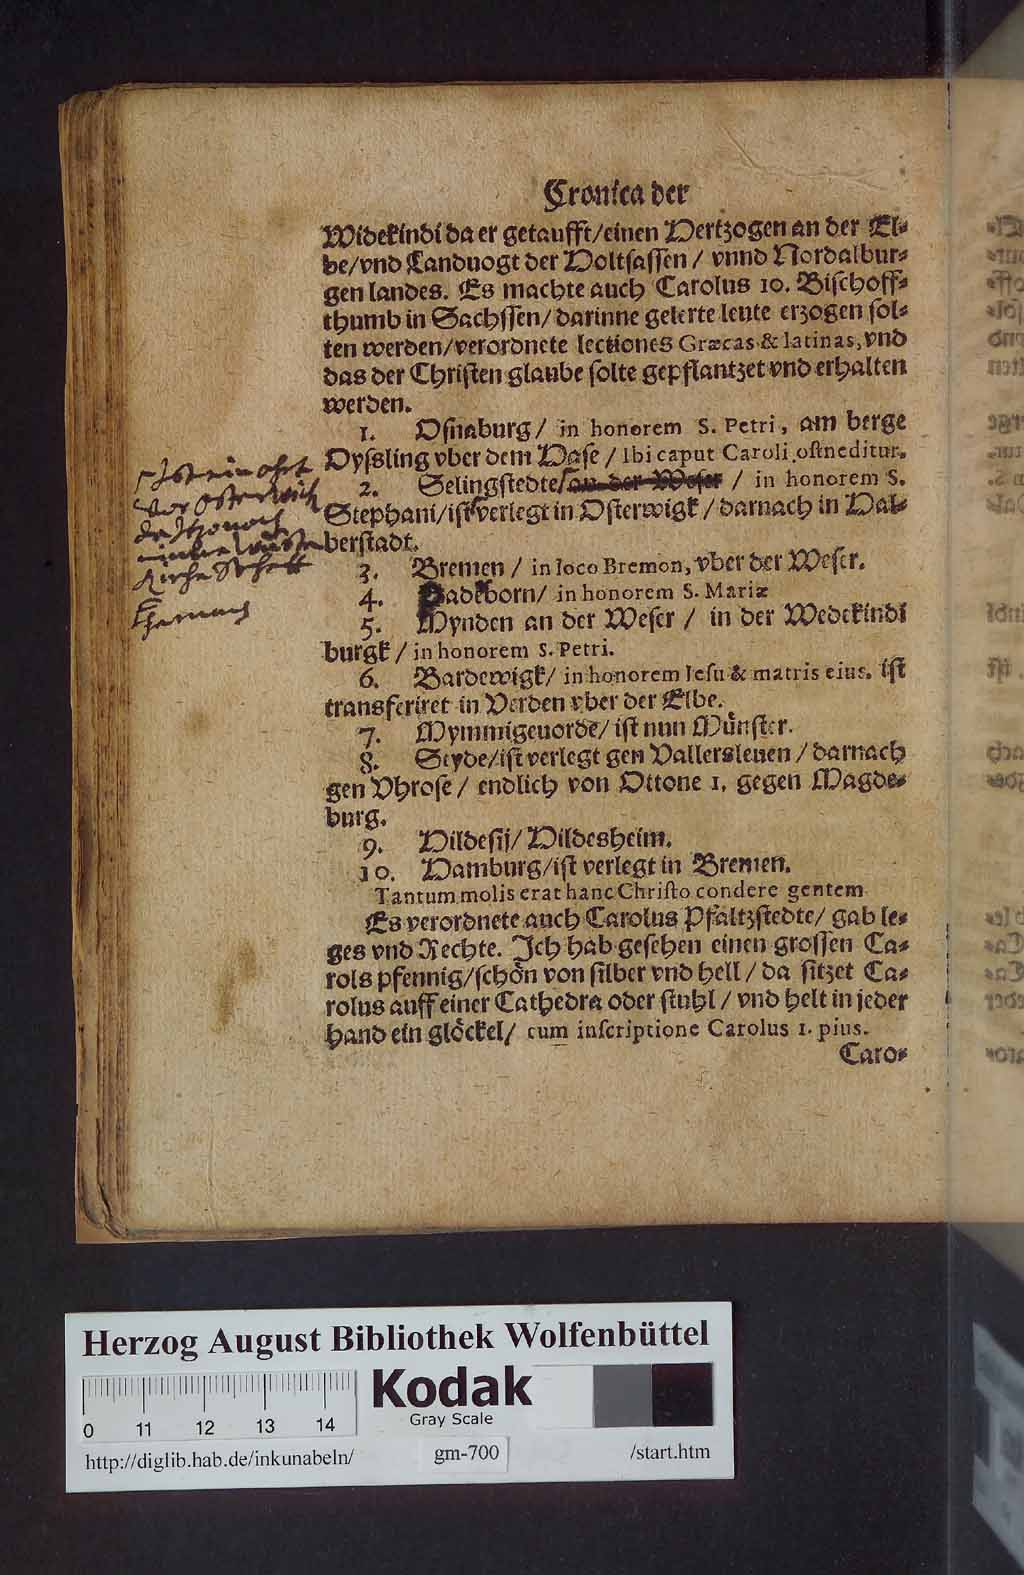 Cronica der
Widekindi da er getaufft/einen Hertzogen an der El⸗
be/vnd Landuogt der Holtsassen / vnnd Nordalbur⸗
gen landes. Es machte auch Carolus 10. Bischoff⸗
thumb in Sachssen/ darinne gelerte leute erzogen sol⸗
ten werden/verordnete lectiones Græcas & latinas, vnd
das der Christen glaube solte gepflantzet vnd erhalten
werden.
1. Osnaburg/ in honorem S. Petri, am berge
Dyssling vber dem Hase / Ibi caput Caroli ostneditur.
2. Selingstedte/ an der Weser / in honorem S.
Stephani/ist verlegt in Osterwigk / darnach in Hal⸗
berstadt.
3. Bremen / in loco Bremon, vber der Weser.
4. Padeborn/ in honorem S. Mariæ
5. Mynden an der Weser / in der Wedekindi
burgk / in honorem S. Petri.
6. Bardewigk/ in honorem Iesu & matris eius. ist
transferiret in Verden vber der Elbe.
7. Mymmigeuorde/ ist nun Münster.
8. Styde/ist verlegt gen Vallersleuen / darnach
gen Vhrose / endlich von Ottone 1. gegen Magde⸗
burg.
9. Hildesij/ Hildesheim.
10. Hamburg/ist verlegt in Bremen.
Tantum molis erat hanc Christo condere gentem
Es verordnete auch Carolus Pfaltzstedte/ gab le⸗
ges vnd Rechte. Ich hab gesehen einen grossen Ca⸗
rols pfennig/schön von silber vnd hell / da sitzet Ca⸗
rolus auff einer Cathedra oder stuhl / vnd helt in jeder
hand ein glöckel/ cum inscriptione Carolus 1. pius.
Caro⸗
ist ein ohrt
vor Osterwick
Kirche
Herzog August Bibliothek Wolfenbüttel
Kodak
Gray Scale
0 11 12 13 14
http://diglib.hab.de/inkunabeln/ gm-700 /start.htm